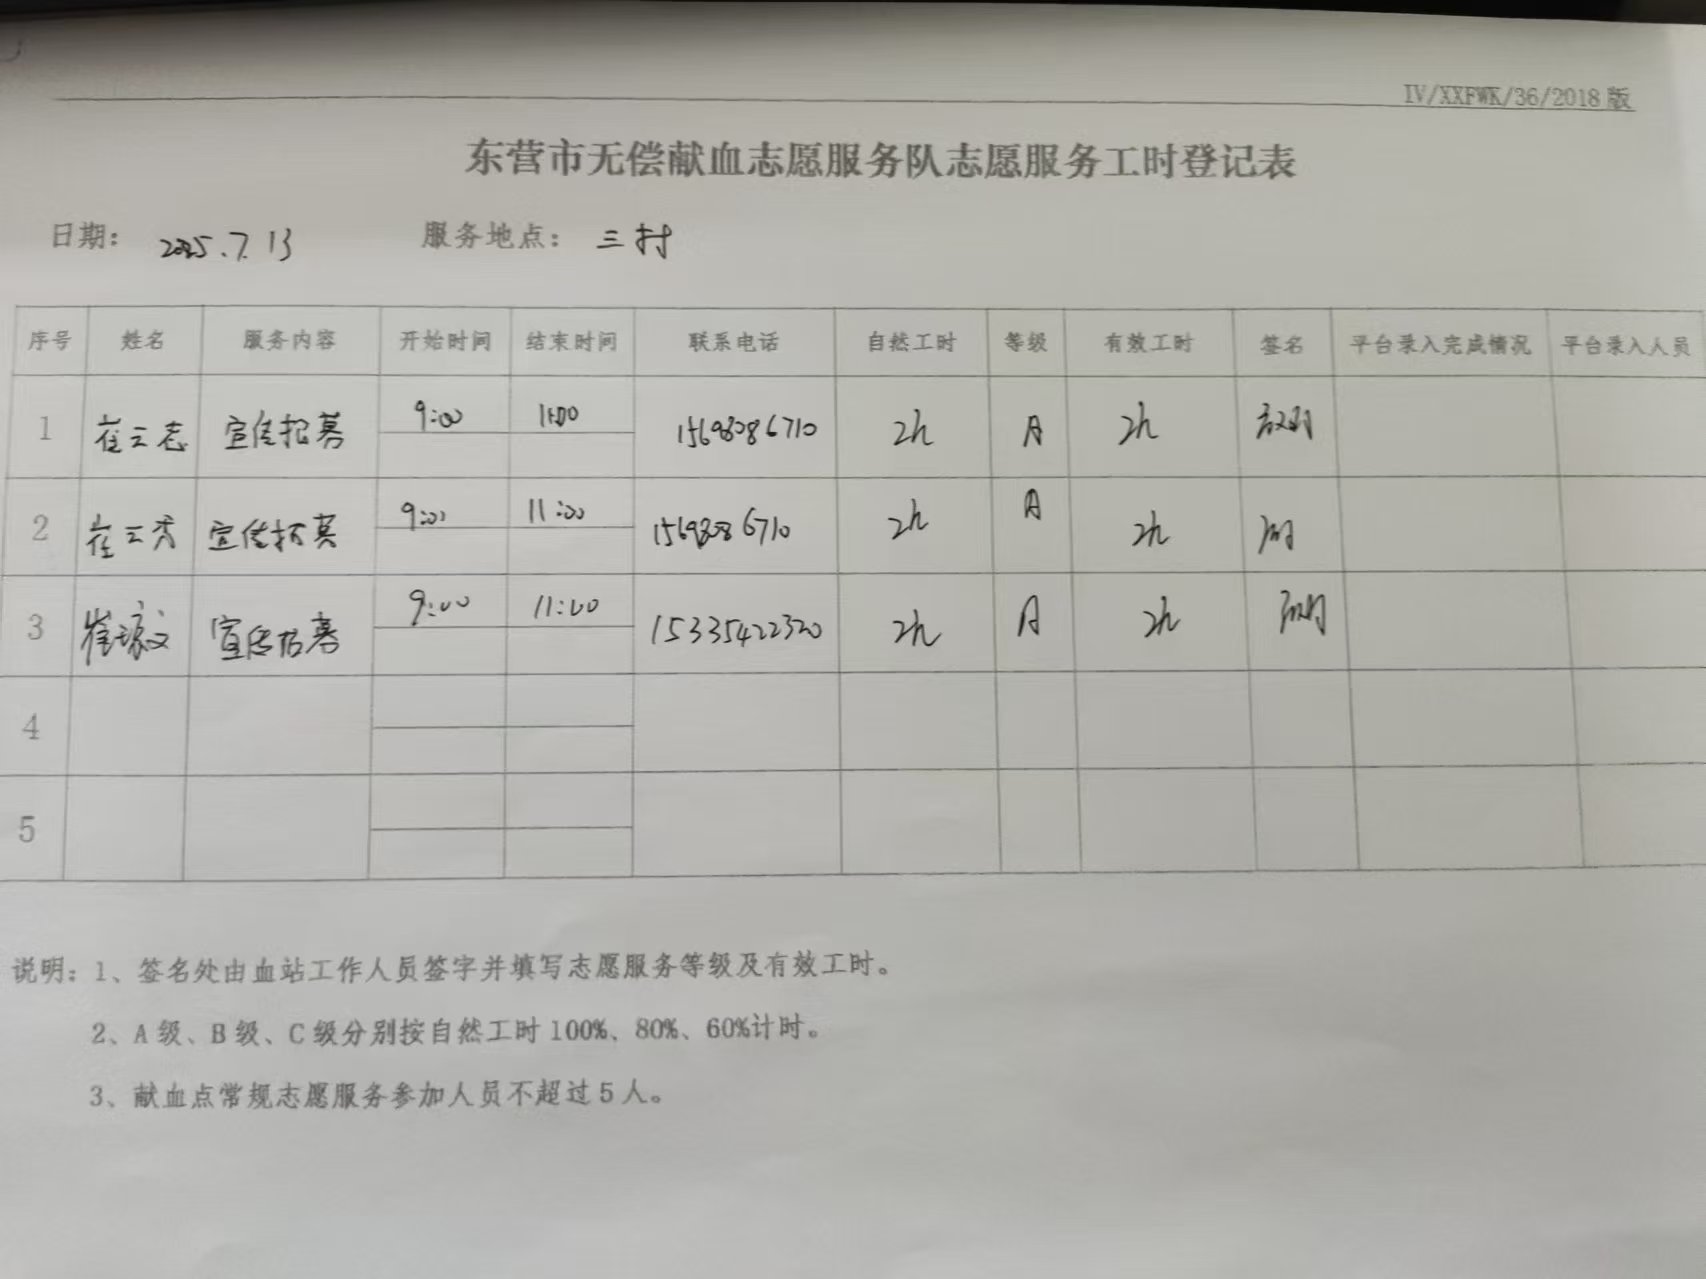 IV/XXFWK/36/2018版
东营市无偿献血志愿服务队志愿服务工时登记表
日期： 2025.7.13 服务地点： 三村
序号 姓名 服务内容 开始时间 结束时间 联系电话 自然工时 等级 有效工时 签名 平台录入完成情况 平台录入人员
1 崔云志 宣传招募 9:00 11:00 15698086710 2h A 2h
2 崔云秀 宣传招募 9:00 11:00 15698086710 2h A 2h
3 崔 宣传招募 9:00 11:00 15335422320 2h A 2h
4
5
说明：1、签名处由血站工作人员签字并填写志愿服务等级及有效工时。
2、A级、B级、C级分别按自然工时100%、80%、60%计时。
3、献血点常规志愿服务参加人员不超过5人。